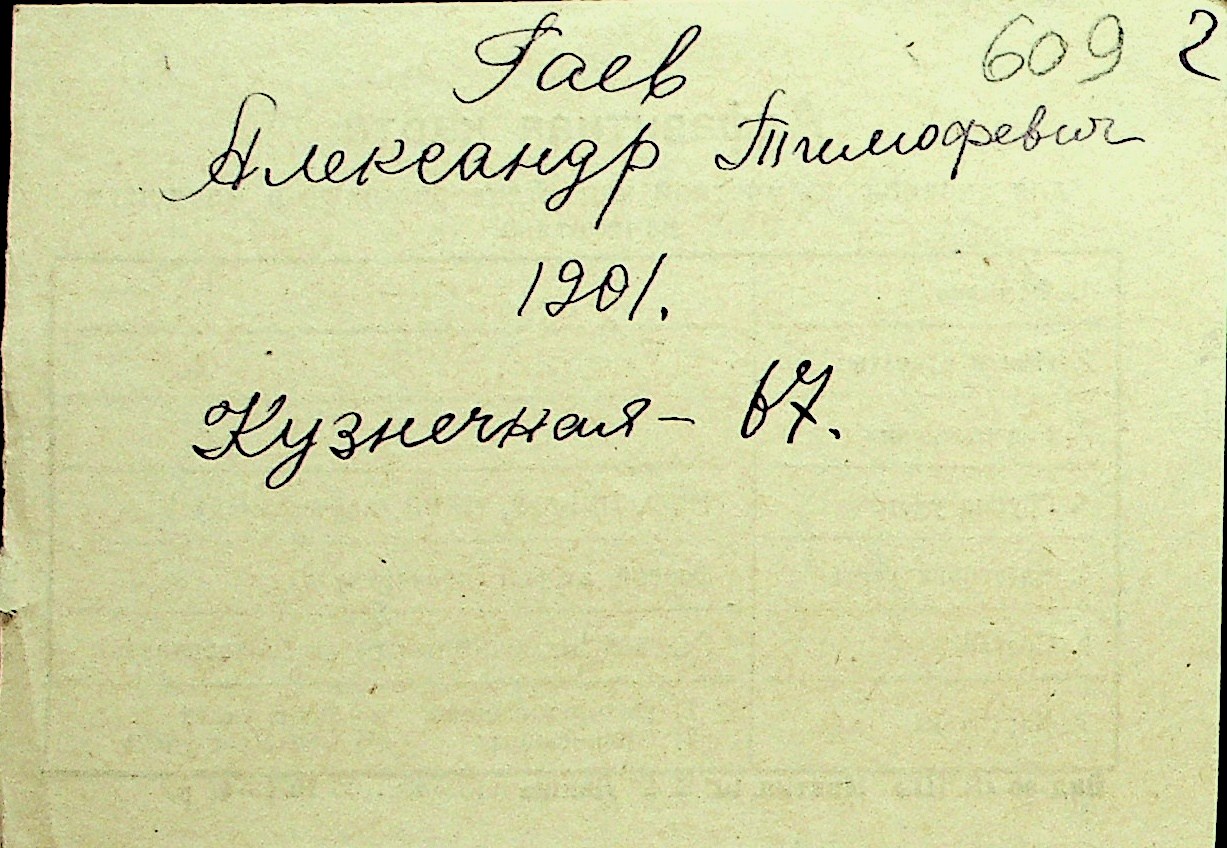 609 2
Гаев
Александр Тимофевич
1901.
Кузнечная - 67.